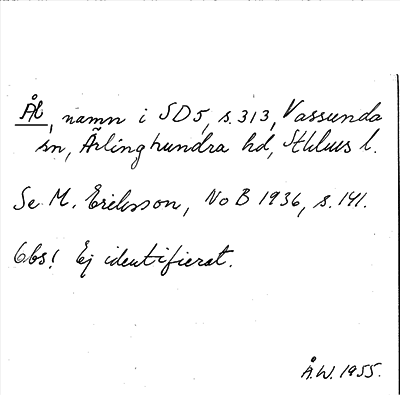 Ål, namn i SD5, s.313, Vassunda
sn, Ärlinghundra hd, Sthlms l.
Se M. Eriksson, NoB 1936, s. 141.
Obs! Ej identifierat.
Å.W. 1955.